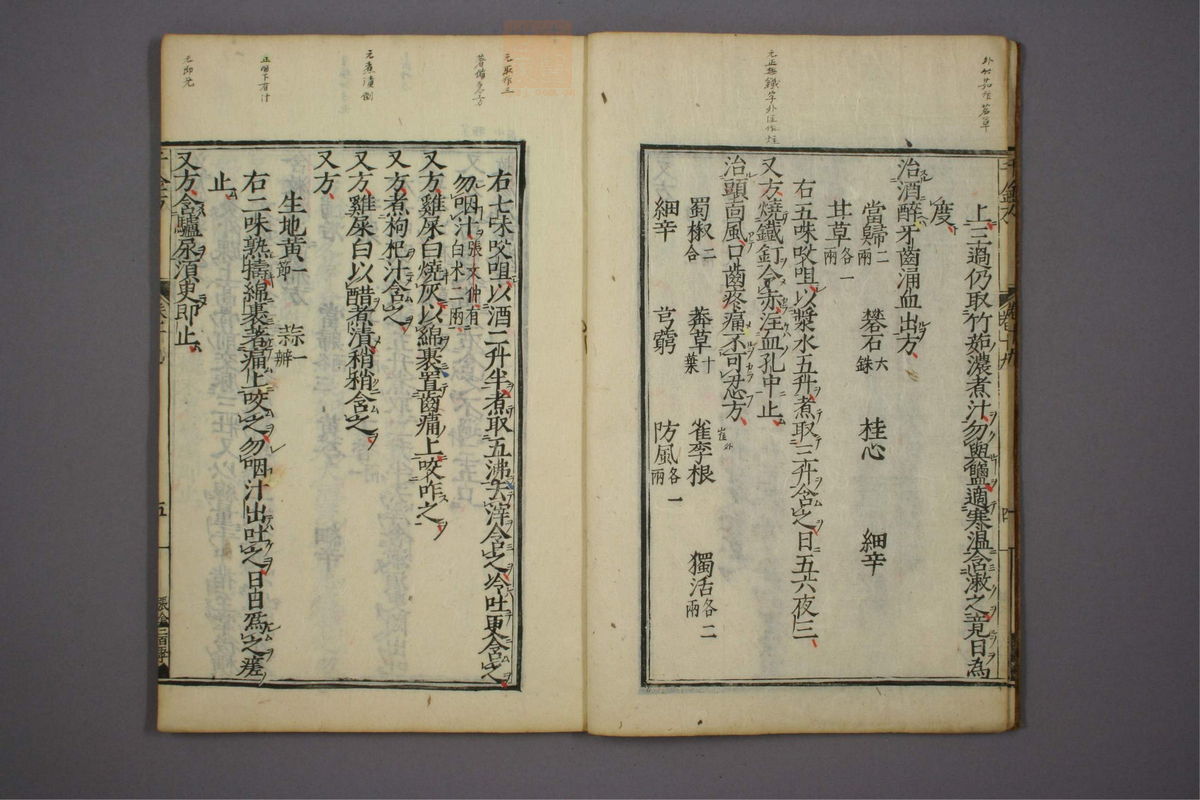 外竹茹作著草
上三過仍取竹茹濃煮汁勿與鹽適寒温含漱之竟日為
度
治酒醉牙齒涌血出方
當歸二兩 礬石六銖 桂心 細辛
甘草各一兩
右五味㕮咀以漿水五升煮取三升含之日五六夜三
元正無鐵字外注作炷
又方燒鐵釘令赤注血孔中止
治頭靣風口齒疼痛不可忍方
蜀椒二合 莾草十葉 雀李根 獨活各二兩
雀外
細辛 芎藭 防風各一兩
右七味㕮咀以酒二升半煮取五沸去滓含之冷吐更含之
勿咽汁張文仲有白术二兩
又方雞屎白燒灰以綿裹置齒痛上咬咋之
又方煮枸杞汁含之
元煮漬倒
又方雞屎白以醋煮漬稍稍含之
又方
生地黄一節 蒜一瓣
正咽下有汁
右二味熟擣綿裹著痛上咬之勿咽汁出吐之日日爲之瘥
止
元即兄
又方含驢尿須臾即止
五
四